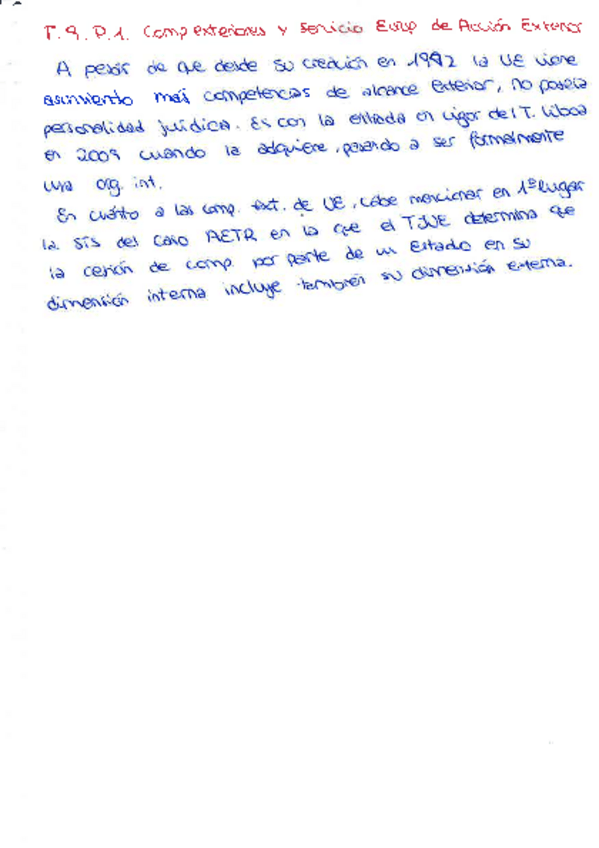 T.9.P.1. Comp exteriores y Servicio Europ de Acción Exterior
A pesar de que desde su creación en 1992 la UE viene
asumiendo más competencias de alcance exterior, no poseía
personalidad jurídica. Es con la entrada en vigor del T. Lisboa
en 2009 cuando la adquiere, pasando a ser formalmente
una org. int.
En cuánto a las comp. ext. de UE, cabe mencionar en 1º lugar
la STS del Caso AETR en la que el TJUE determina que
la cesión de comp. por parte de un Estado en su
dimensión interna incluye también su dimensión externa.